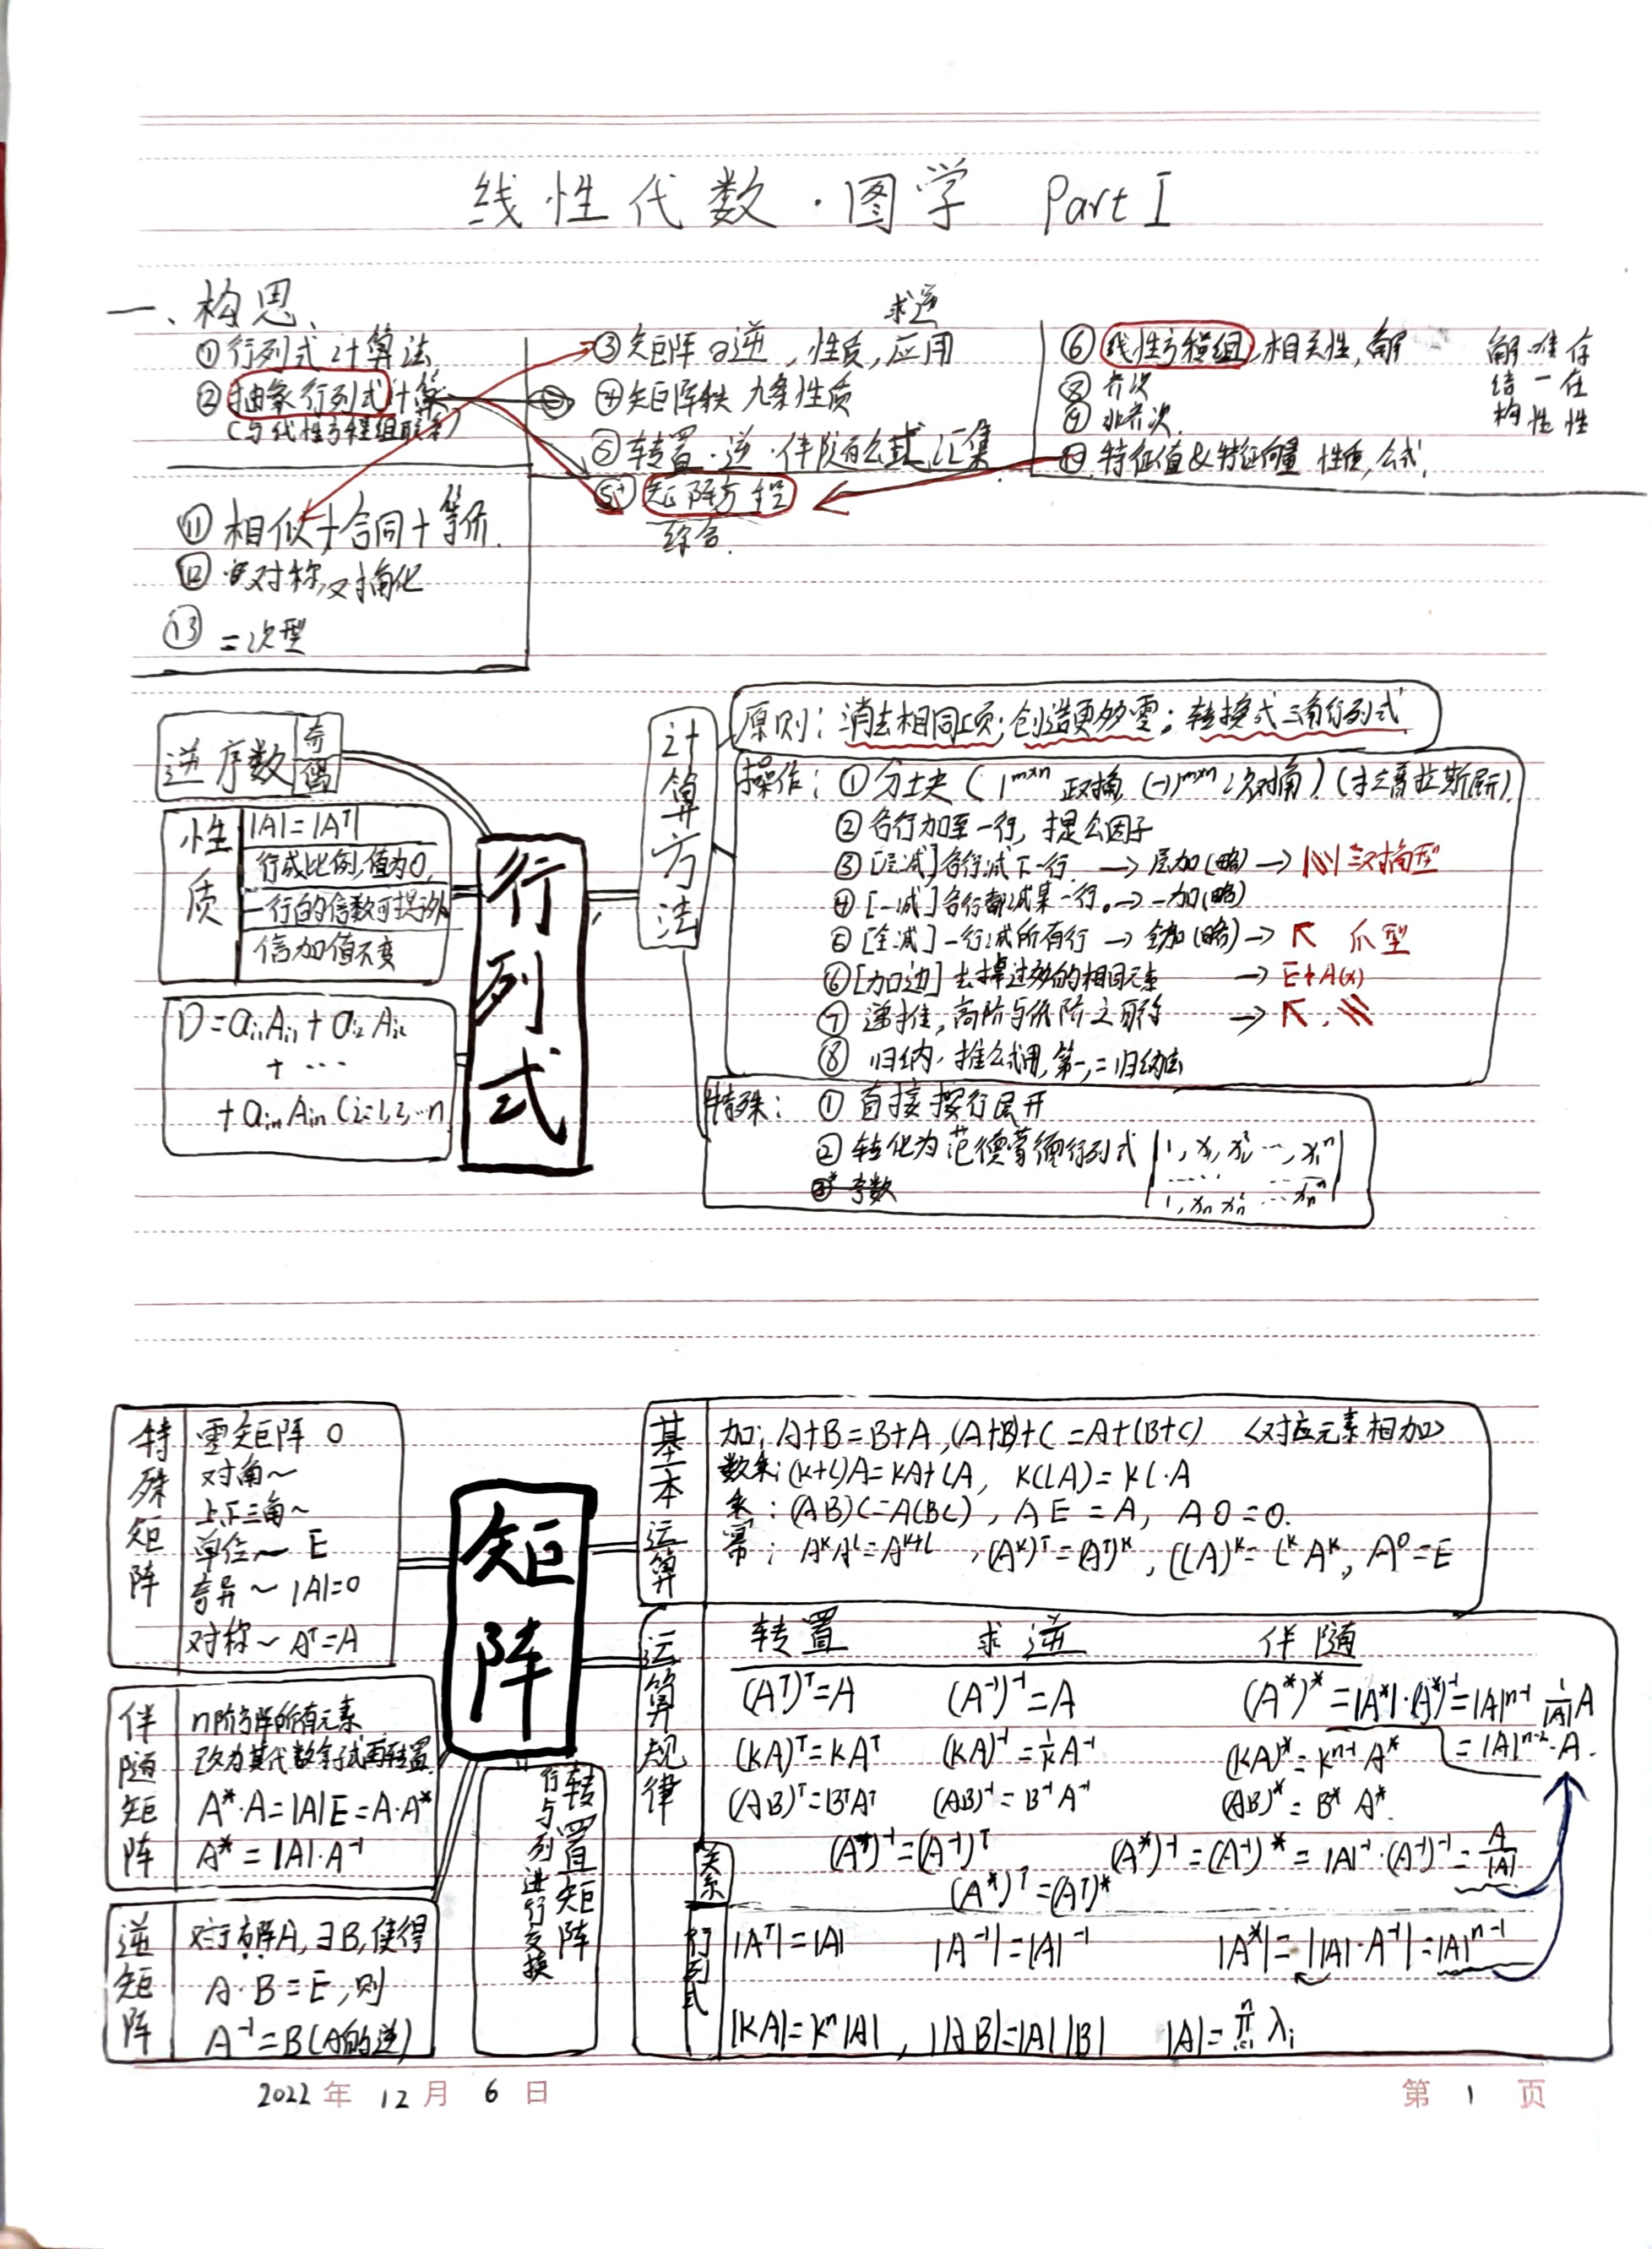 线性代数·图学 Part I
一、构思
① 行列式计算法
② 抽象行列式计算
(与线性方程组联系)
求逆
③ 矩阵の逆,性质,应用
④ 矩阵秩 九条性质
⑤ 转置·逆·伴随の公式汇集
⑤⁺ 矩阵方程
综合.
⑥ 线性方程组,相关性,解
⑧ 齐次
⑨ 非齐次.
⑩ 特征值&特征向量 性质,公式.
解 唯 存
结 一 在
构 性 性
⑪ 相似+合同+等价.
⑫ 对称,对角化
⑬ 二次型
逆序数 奇 偶
性质
|A|=|Aᵀ|
行成比例,值为0,
一行的倍数可提外
倍加值不变
D=aᵢ₁Aᵢ₁+aᵢ₂Aᵢ₂
+…
+aᵢₙAᵢₙ (i=1,2,…n
行列式
计算方法
原则: 消去相同项;创造更多零;转换成三角行列式
操作: ① 分块 (1ᵐˣⁿ 主对角, (-1)ᵐˣⁿ 次对角) (拉普拉斯展开).
② 各行加至一行, 提公因子
③ [层减] 各行减下一行. → 层加(略) → 三对角型
④ [一减] 各行都减某一行。→ 一加(略)
⑤ [全减] 一行减所有行 → 全加(略) → ↖ 爪型
⑥ [加边] 去掉过多的相同元素 → E+A(x)
⑦ 递推, 高阶与低阶之关系 → ↖.
⑧ 归纳·推公式用,第一,二归纳法
特殊: ① 直接按行展开
② 转化为范德蒙德行列式 |1, x₁, x₁² …, x₁ⁿ|
1, xₙ xₙ² … xₙⁿ
特殊矩阵
零矩阵 0
对角~
上.下三角~
单位~ E
奇异~ |A|=0
对称~ Aᵀ=A
伴随矩阵
n阶方阵所有元素
改为其代数余子式再转置
A*·A=|A|E=A·A*
A*=|A|·A⁻¹
逆矩阵
对于方阵A,∃B,使得
A·B=E,则
A⁻¹=B(A的逆)
矩阵
转置矩阵
行与列进行交换
基本运算
加: A+B=B+A,(A+B)+C=A+(B+C) <对应元素相加>
数乘: (k+l)A=kA+lA, k(lA)=kl·A
乘: (AB)C=A(BC), AE=A, A0=0.
幂: AᵏAˡ=Aᵏ⁺ˡ ,(Aᵏ)ᵀ=(Aᵀ)ᵏ, (lA)ᵏ=lᵏAᵏ, A⁰=E
运算规律
转置 求逆 伴随
(Aᵀ)ᵀ=A (A⁻¹)⁻¹=A (A*)*=|A*|·(A*)⁻¹=|A|ⁿ⁻¹ 1/|A| A
=|A|ⁿ⁻²·A.
(kA)ᵀ=kAᵀ (kA)⁻¹=1/k A⁻¹ (kA)*=kⁿ⁻¹A*
(AB)ᵀ=BᵀAᵀ (AB)⁻¹=B⁻¹A⁻¹ (AB)*=B*A*.
关系
(Aᵀ)⁻¹=(A⁻¹)ᵀ (A*)⁻¹=(A⁻¹)*=|A|⁻¹·(A⁻¹)⁻¹=A/|A|
(A*)ᵀ=(Aᵀ)*
行列式
|Aᵀ|=|A| |A⁻¹|=|A|⁻¹ |A*|=||A|·A⁻¹|=|A|ⁿ⁻¹
|kA|=kⁿ|A| , |AB|=|A||B| |A|=∏ⁿᵢ₌₁ λᵢ
2022 年 12 月 6 日
第 1 页